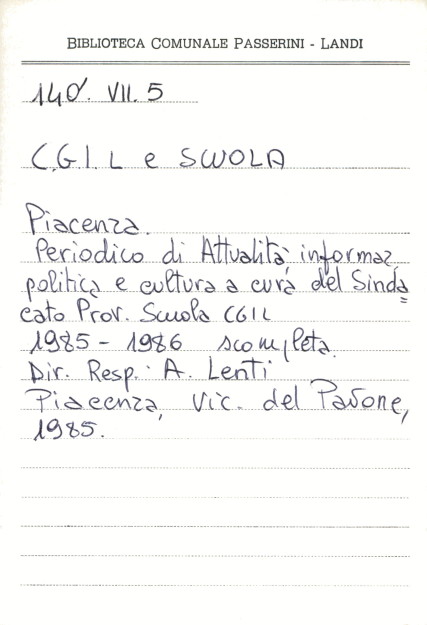 BIBLIOTECA COMUNALE PASSERINI - LANDI
140. VII. 5
C.G.I.L e SCUOLA
Piacenza.
Periodico di Attualità, informaz
politica e cultura a cura del Sinda
cato Prov. Scuola CGIL
1985 - 1986 scompleta.
Dir. Resp.: A. Lenti
Piacenza, Vic. del Pavone,
1985.